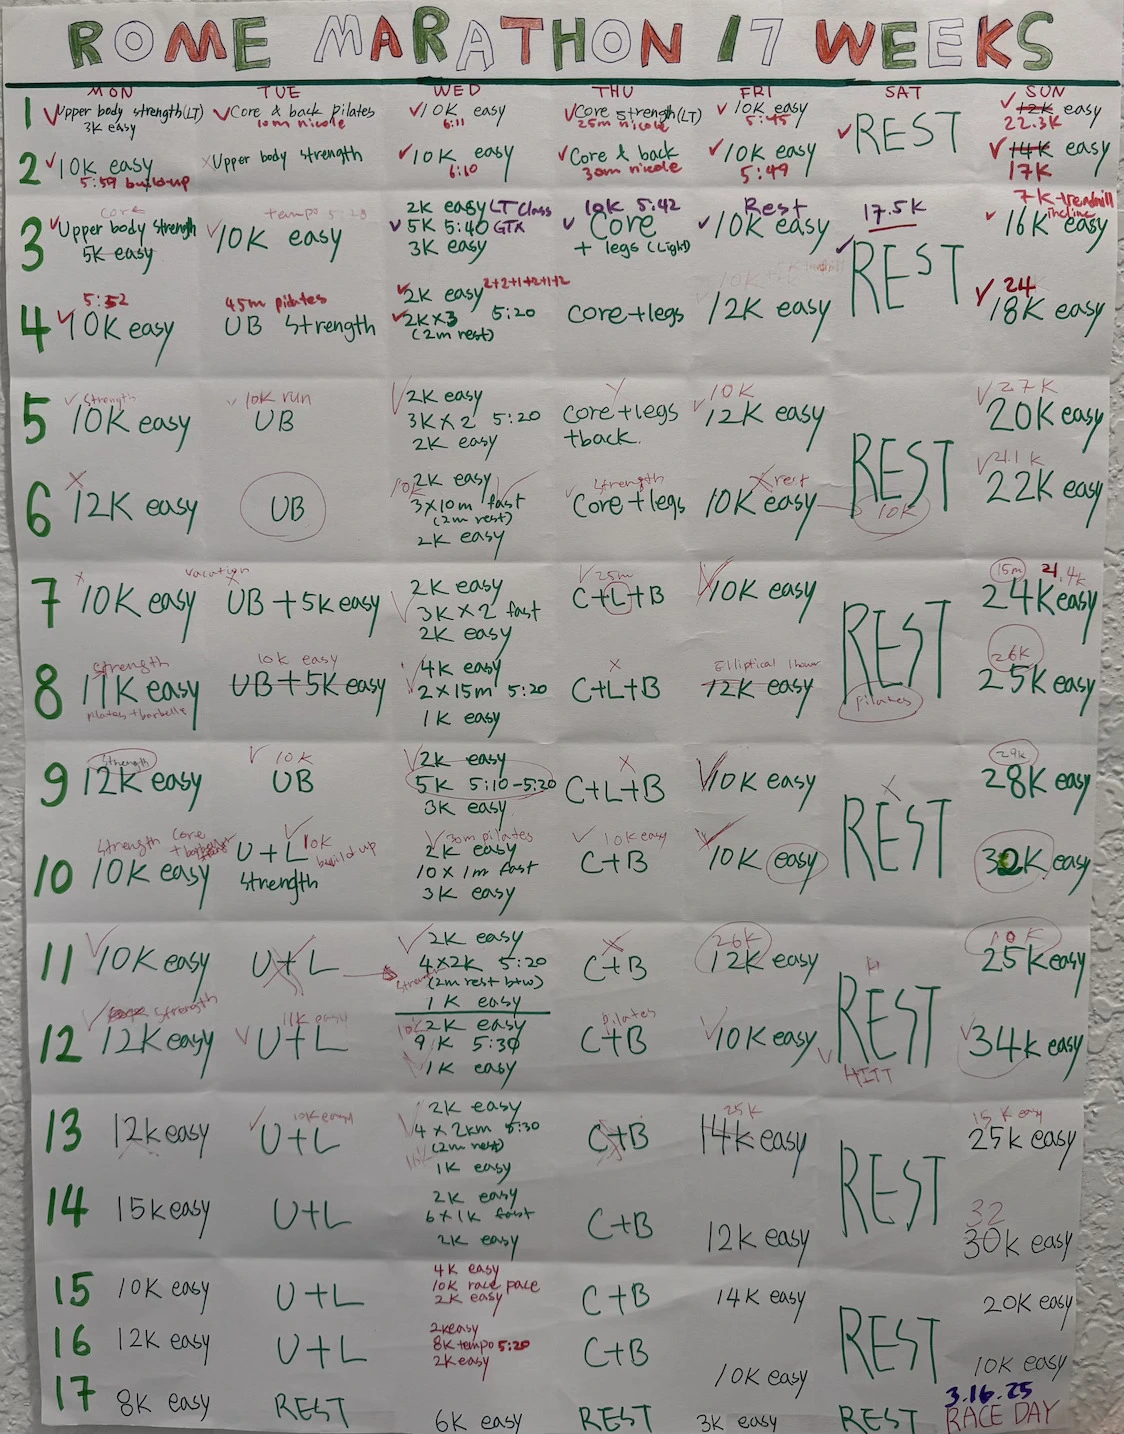 ROME MARATHON 17 WEEKS
MON TUE WED THU FRI SAT SUN
1
Upper body strength(LT)
3K easy
Core & back pilates
10m nicole
10K easy
6:11
Core strength(LT)
25m nicole
10K easy
5:45
REST
12K easy
22.3K
2
10K easy
5:59 build up
Upper body strength
10K easy
6:10
Core & back
30m nicole
10K easy
5:49
14K easy
17K
3
core
Upper body strength
5K easy
tempo 5:20
10K easy
2K easy LT Class
5K 5:40 GTX
3K easy
10K 5:42
Core
+ legs (Light)
Rest
10K easy
17.5K
REST
7K treadmill
incline
16K easy
4
5:52
10K easy
45m pilates
UB strength
2K easy 2+2+1+2+1+2
2K×3 5:20
(2m rest)
Core+legs
12K easy
24
18K easy
5
strength
10K easy
10K run
UB
2K easy
3K×2 5:20
2K easy
Core+legs
+back.
10K
12K easy
REST
27K
20K easy
6
12K easy
UB
10K
2K easy
3×10m fast
(2m rest)
2K easy
strength
Core+legs
rest
10K easy
10K
21.1K
22K easy
7
10K easy
vacation
UB+5K easy
2K easy
3K×2 fast
2K easy
25m
C+L+B
10K easy
REST
15m 21.4K
24K easy
8
strength
11K easy
pilates + barbelle
10K easy
UB+5K easy
4K easy
2×15m 5:20
1K easy
C+L+B
Elliptical 1 hour
12K easy
pilates
26K
25K easy
9
strength
12K easy
10K
UB
2K easy
5K 5:10-5:20
3K easy
C+L+B
10K easy
REST
29K
28K easy
10
strength core
10K easy
U+L 10K
build up
strength
30m pilates
2K easy
10×1m fast
3K easy
10K easy
C+B
10K easy
30K easy
11
10K easy
U+L
strength
2K easy
4×2K 5:20
(2m rest btw)
1K easy
C+B
26K
12K easy
REST
10K
25K easy
12
strength
12K easy
11K easy
U+L
10K
2K easy
9K 5:30
1K easy
pilates
C+B
10K easy
HIIT
34K easy
13
12K easy
10K easy
U+L
2K easy
4×2km 5:30
(2m rest)
1K easy
C+B
25K
14K easy
REST
15K easy
25K easy
14
15K easy
U+L
2K easy
6×1K fast
2K easy
C+B
12K easy
32
30K easy
15
10K easy
U+L
4K easy
10K race pace
2K easy
C+B
14K easy
REST
20K easy
16
12K easy
U+L
2K easy
8K tempo 5:20
2K easy
C+B
10K easy
10K easy
17
8K easy
REST
6K easy
REST
3K easy
REST
3.16.25
RACE DAY